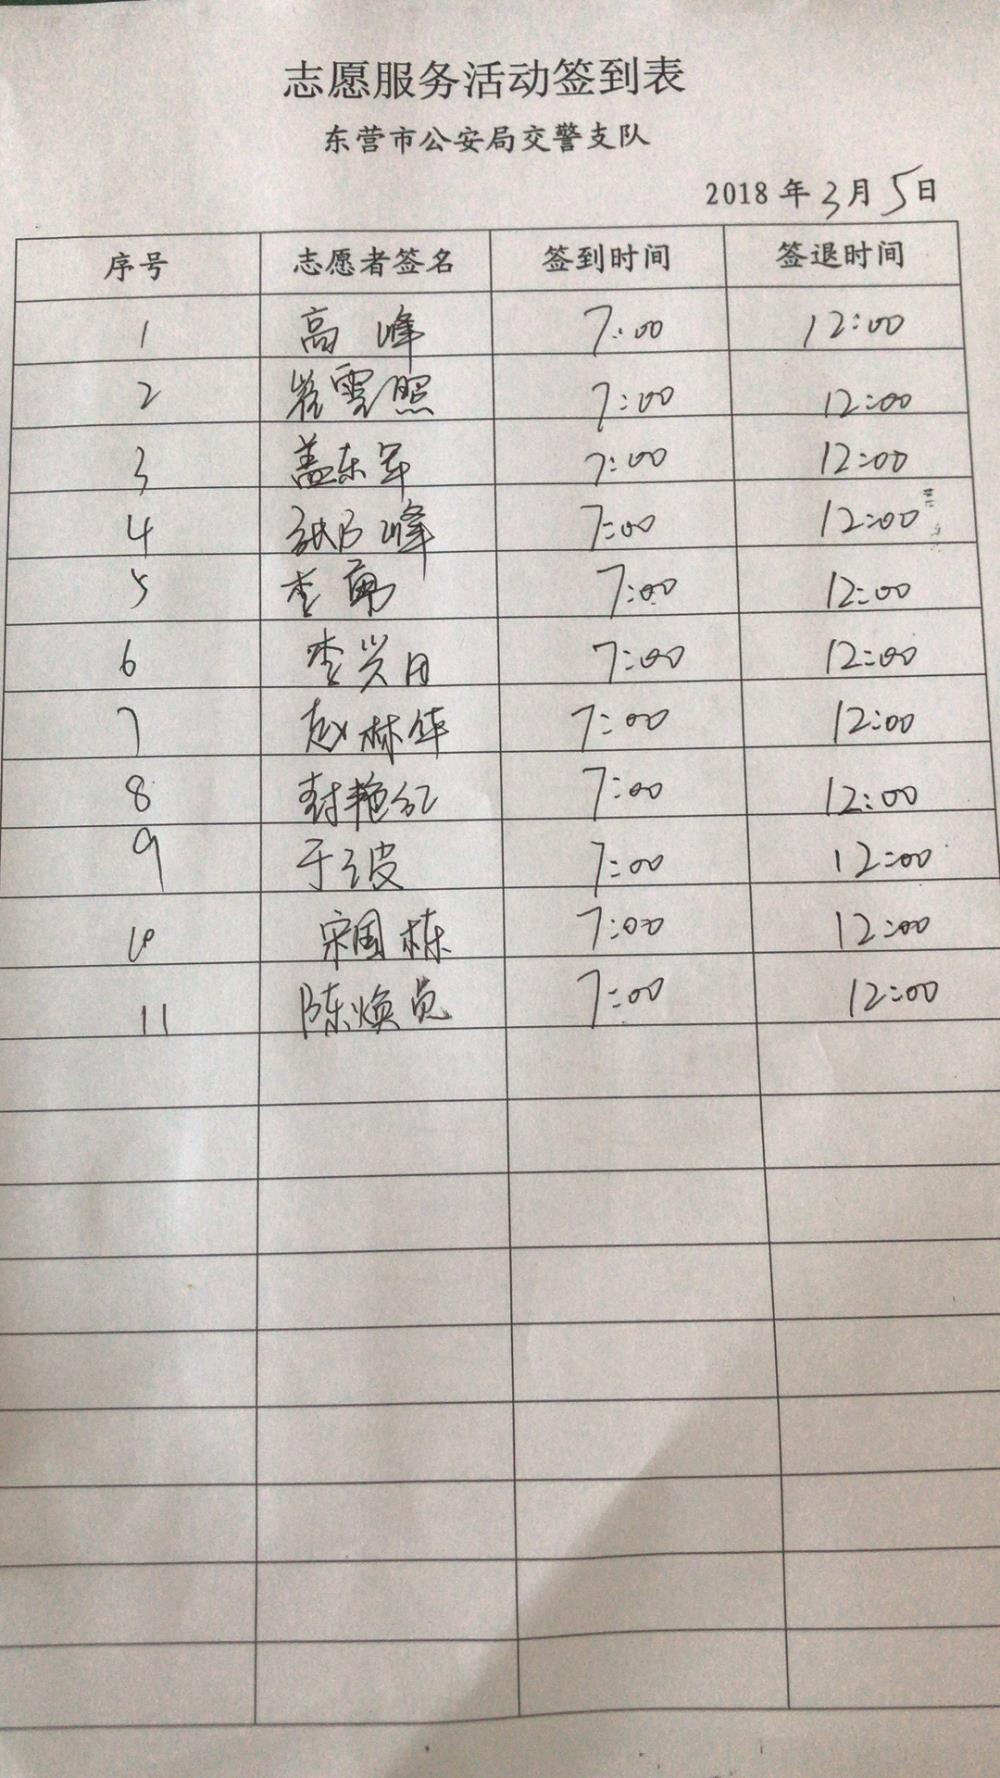 志愿服务活动签到表
东营市公安局交警支队
2018 年 3 月 5 日
序号 志愿者签名 签到时间 签退时间
1 高峰 7:00 12:00
2 崔雪照 7:00 12:00
3 盖东军 7:00 12:00
4 峰 7:00 12:00
5 李勇 7:00 12:00
6 李兴田 7:00 12:00
7 赵林华 7:00 12:00
8 封艳红 7:00 12:00
9 于波 7:00 12:00
10 宋国栋 7:00 12:00
11 陈焕 7:00 12:00